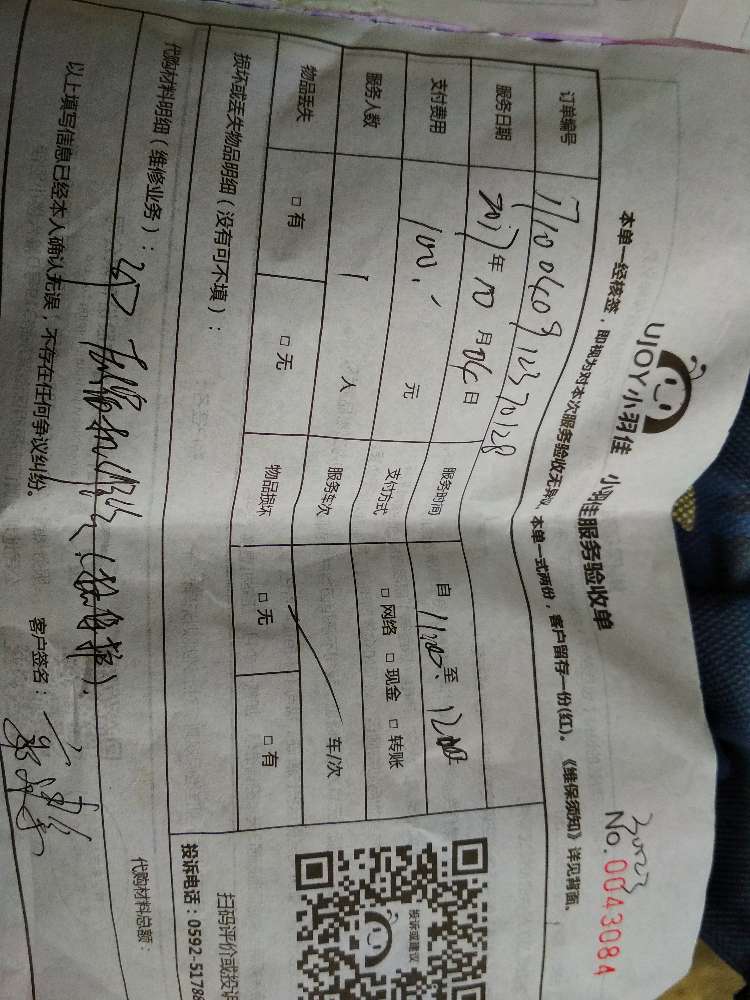 UJOY小羽佳 小羽佳服务验收单
No.0043084
本单一经核签，即视为对本次服务验收无异议。本单一式两份，客户留存一份(红)。《维保须知》详见背面。
订单编号
服务日期 2017年10月04日 服务时间 自 至
支付费用 100. 元 支付方式 □网络 □现金 □转账
服务人数 1 人 服务车次 车/次
物品丢失 □有 □无 物品损坏 □无 □有
损坏或丢失物品明细（没有可不填）：
代购材料明细（维修业务）：
代购材料总额：
以上填写信息已经本人确认无误，不存在任何争议纠纷。 客户签名：
投诉或建议
扫码评价或投诉
投诉电话：0592-5178